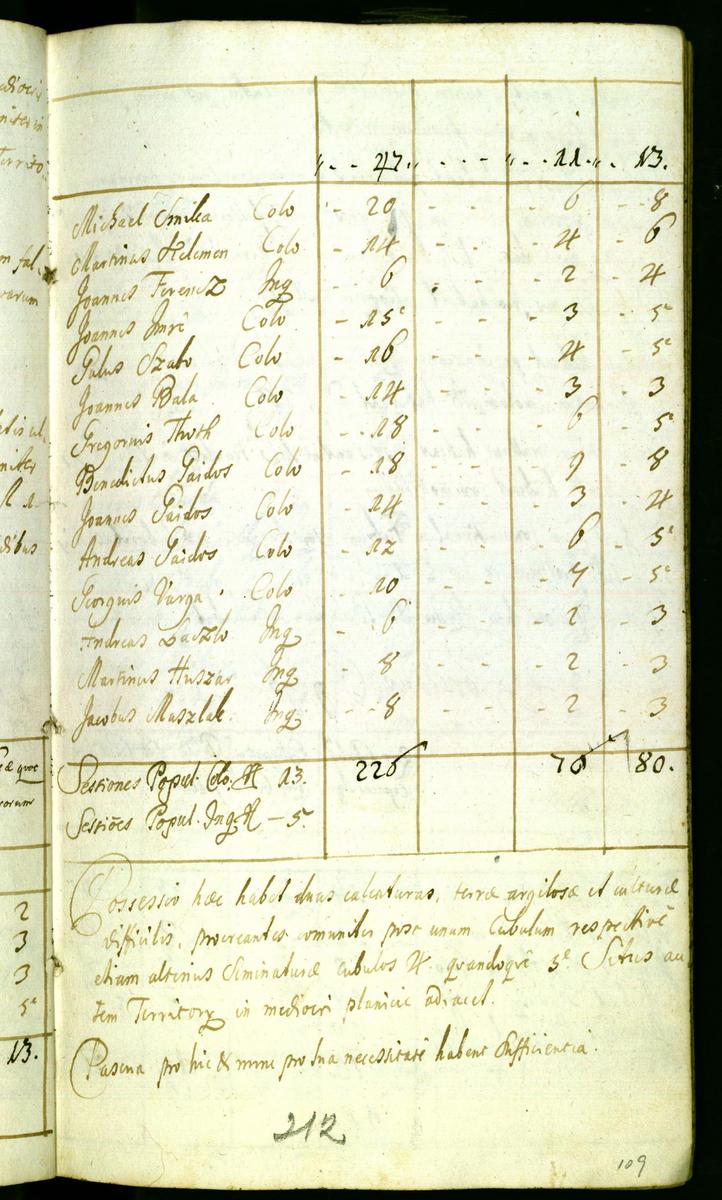 47. 11. 13.
Michael Smilka Colo 20 6 8
Martinus Kelemen Colo 14 4 6
Joannes Ferencz Inq 6 2 4
Joannes Imre Colo 15 3 5
Palus Szabo Colo 16 4 5
Joannes Bala Colo 14 3 3
Gregorius Thoth Colo 18 6 5
Benedictus Gaidos Colo 18 9 8
Joannes Gaidos Colo 14 3 4
Andreas Gaidos Colo 12 6 5
Georgius Varga Colo 10 7 5
Andreas Laczlo Inq 6 2 3
Martinus Huszar Inq 8 2 3
Jacobus Muszlak Inq 8 2 3
Sessiones Popul. Colo. 13. 226 70 80.
Sessiões Popul. Inq. – 5.
Possessio hæc habet duas calcaturas, terræ argilosæ et culturæ
difficilis, procreantes comuniter post unam Cubulum respective
etiam alterius Seminaturæ cubulos 4. quandoque 5. Situs au
tem Territory in mediocri planicie adiacet.
Pascua pro hic & nunc pro sua necessitate habent sufficientia.
212
109
2
3
3
5
13.